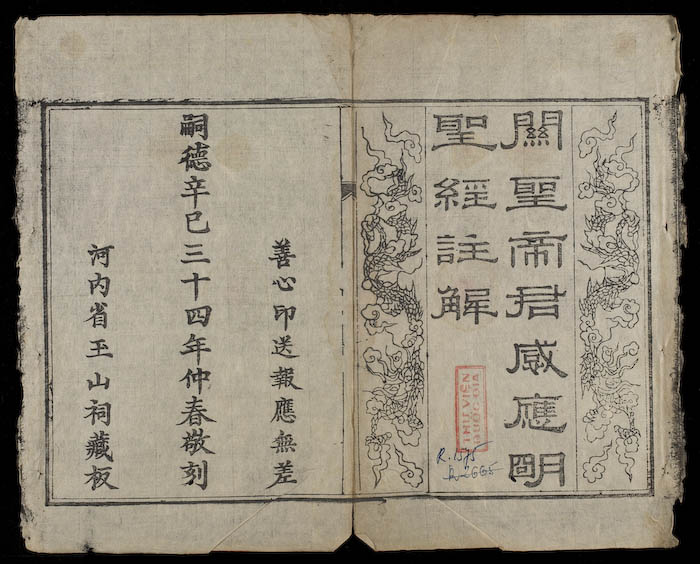 關聖帝君感應明
聖經註解
THƯ VIỆN
QUỐC GIA
R.1575
善心印送報應無差
嗣德辛巳三十四年仲春敬刻
河内省玉山祠藏板